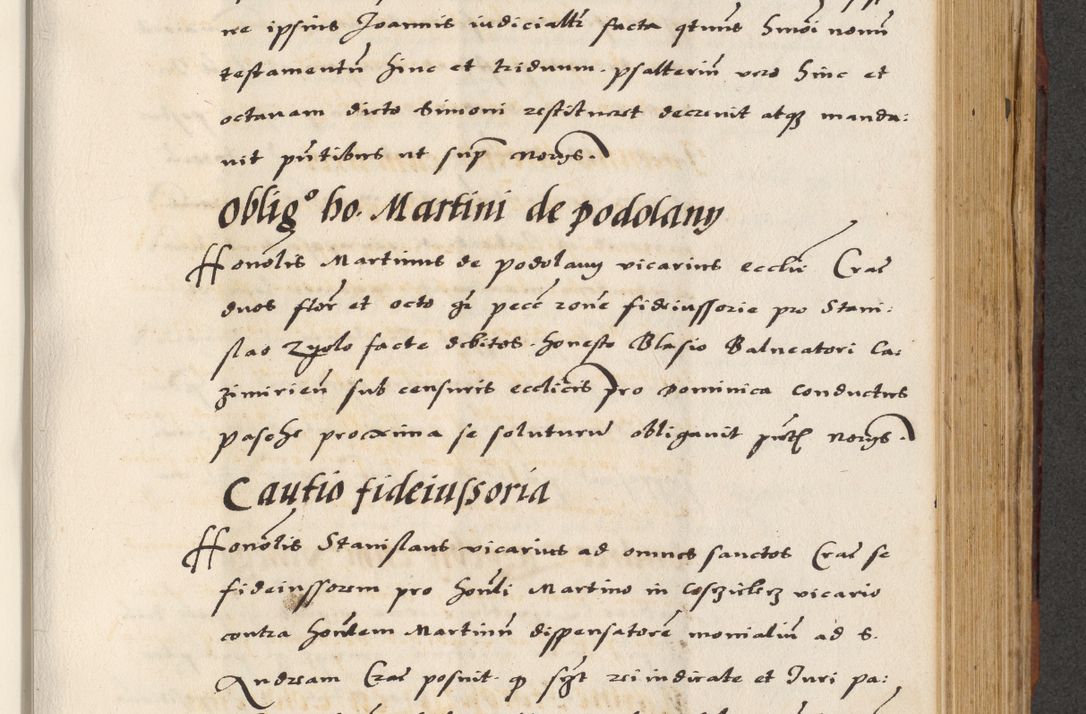 re ipsius Joannis iudicialr̃ facta qtun̄s hmōi nonū
testamentū hinc et triduum. psalteriū vero hinc et
octavam dicto Simoni restitueret decrevit atqȝ manda:
vit pn̄tibus ut sup̄ Norgs.
Oblig° ho. Martini de podolany
Honōlis Martinus de podolany vicarius eccliē Crac̄
duos flor̄ et octo gr̄ pecc̄ rone fideiussorie pro Stani:
slao Zyolo facte debitos. honesto Blasio Balneatori Ca:
zimirien̄ sub censuris ecclicis pro Dominica conductus
pasche proxima se soluturū obligavit pn̄tē Norgs.
Cautio fideiussoria
Honōlis Stanislaus vicarius ad omnes sanctos Crac̄ se
fideiussorem pro honli Martino in Cosczielecz vicario
contra honlem Martinū dispensatorē monialiū ad S.
Andream Crac̄ posuit. ꝙ syt rei indicate et Juri pa: